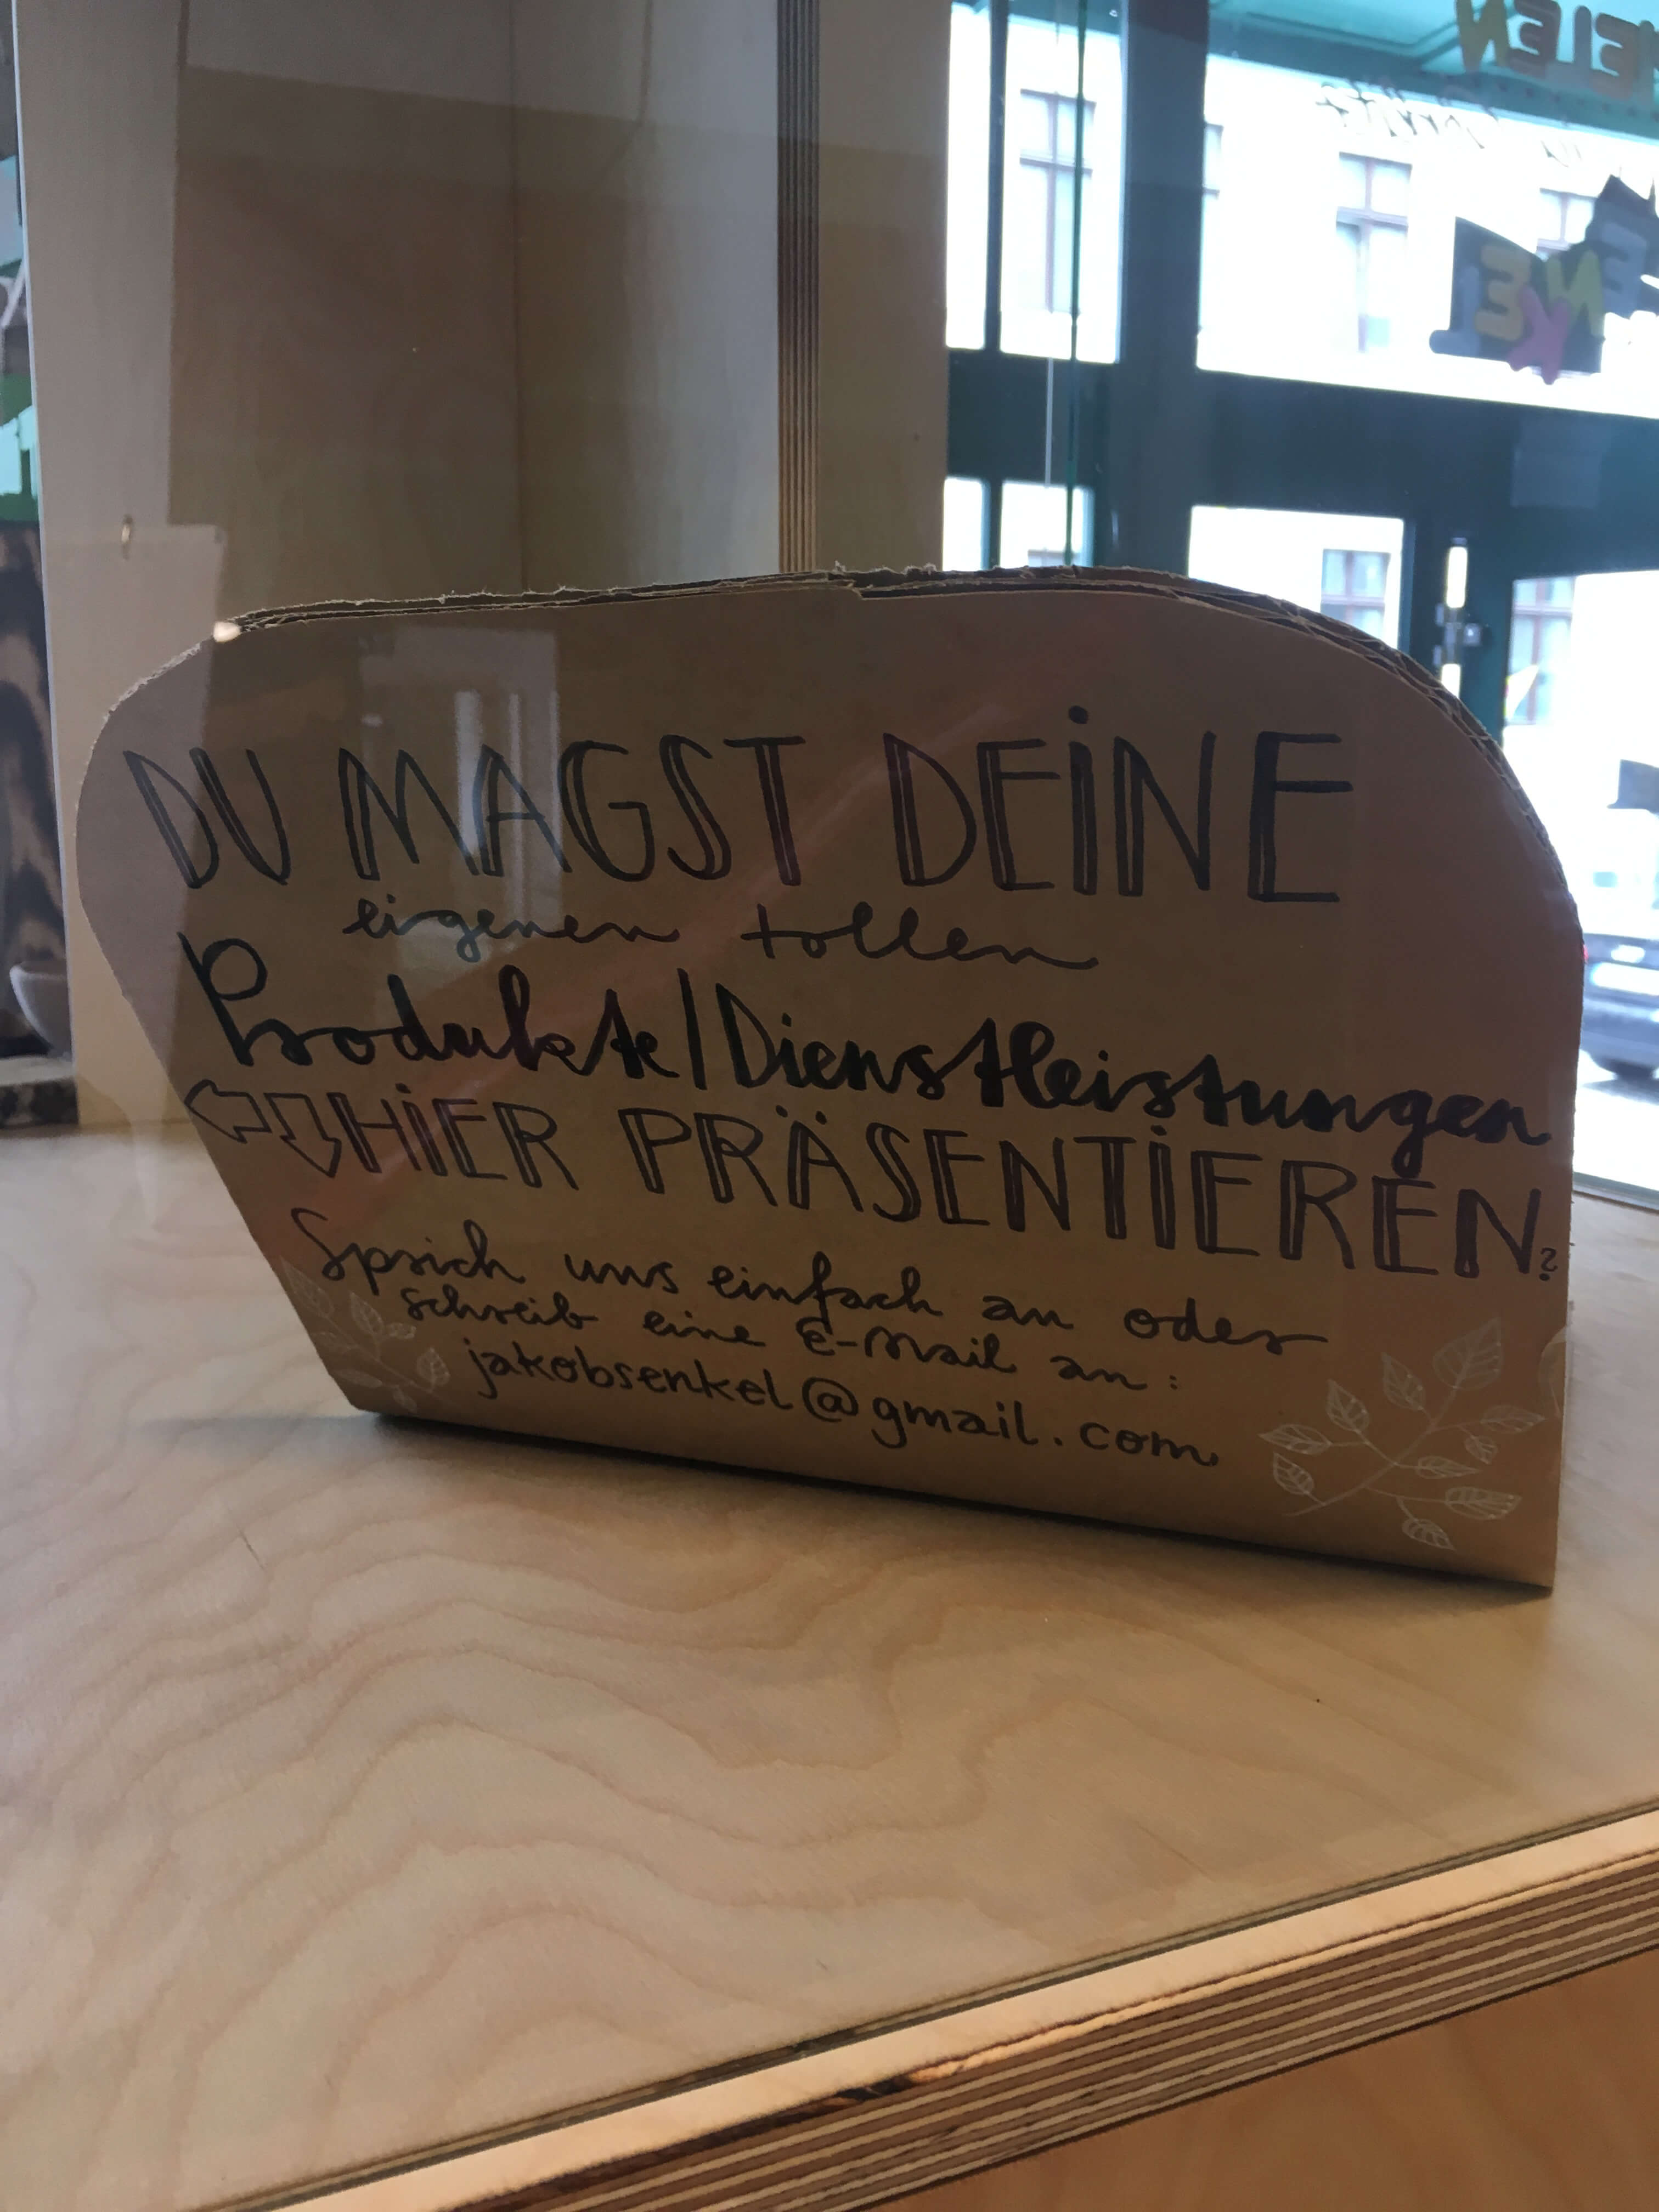 DU MAGST DEINE
eigenen tollen
Produkte/Dienstleistungen
HIER PRÄSENTIEREN?
Sprich uns einfach an oder
schreib eine E-Mail an:
jakobsenkel@gmail.com